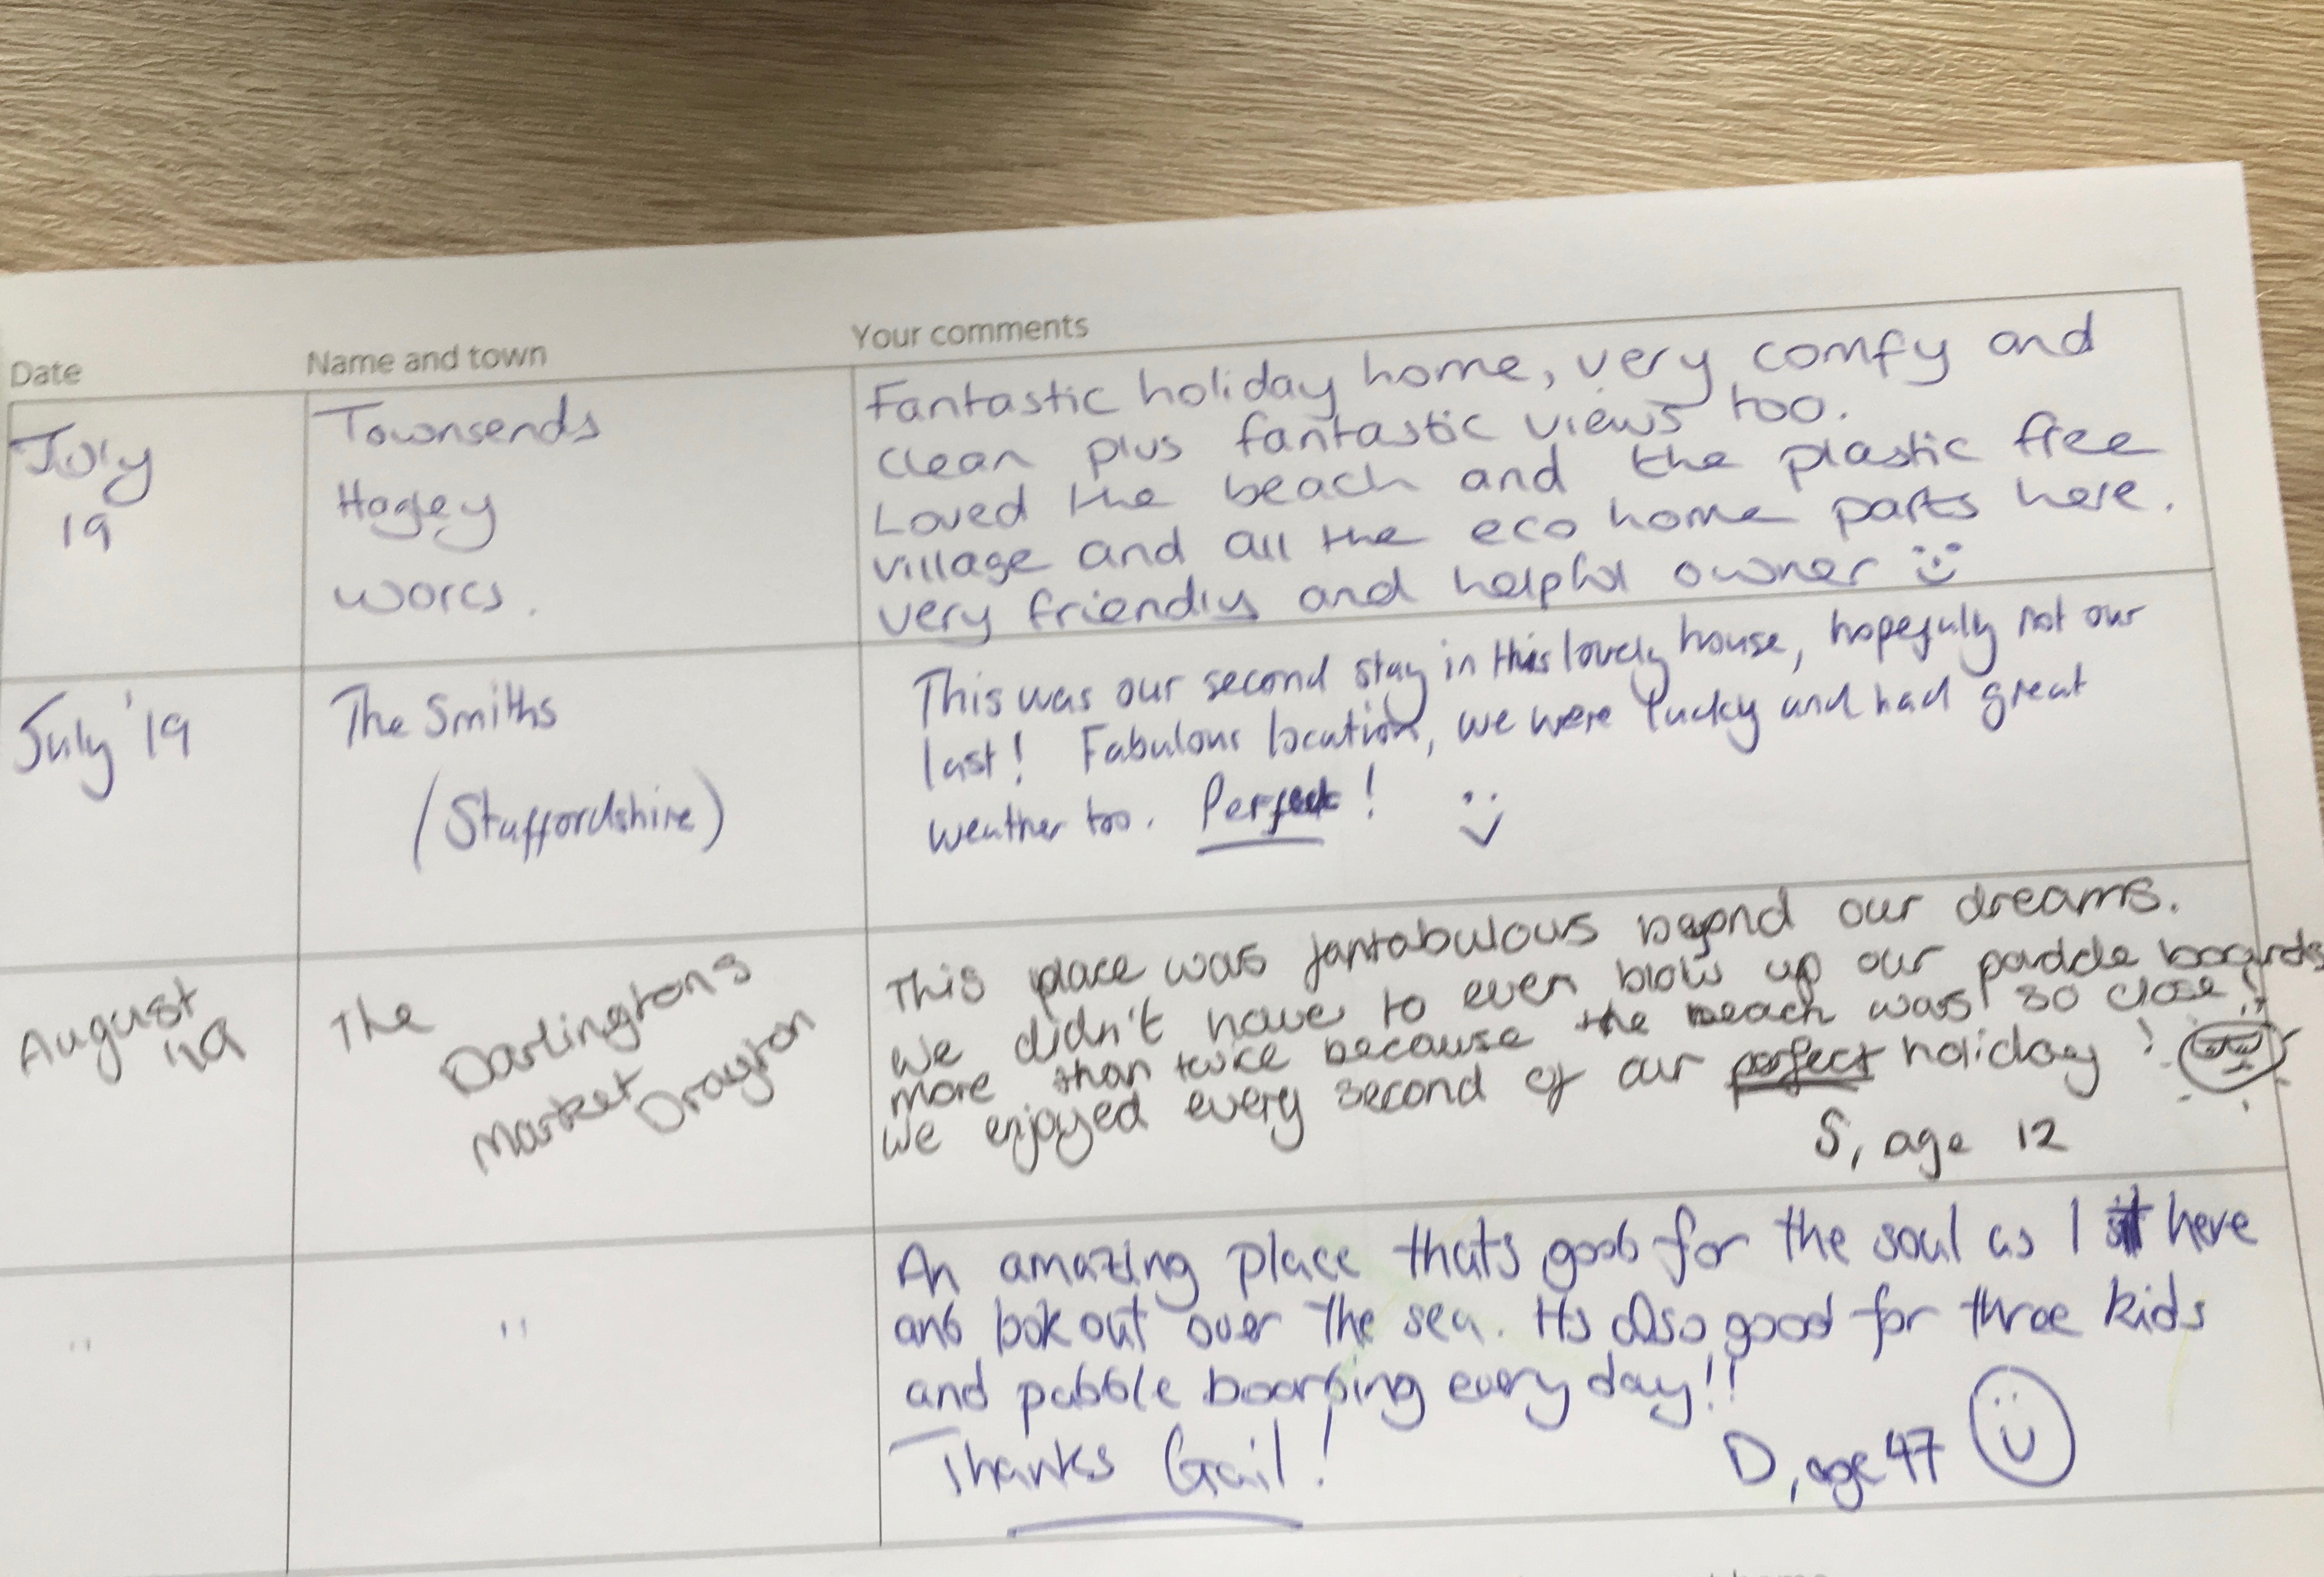 Date Name and town Your comments
July
19
Townsends
Hagley
Worcs.
Fantastic holiday home, very comfy and
clean plus fantastic views too.
Loved the beach and the plastic free
village and all the eco home parts here.
very friendly and helpful owner
July '19
The Smiths
(Staffordshire)
This was our second stay in this lovely house, hopefully not our
last! Fabulous location, we were lucky and had great
weather too. Perfect!
August
'19
The Darlingtons
Market Drayton
This place was fantabulous beyond our dreams.
We didn't have to even blow up our paddle boards
more than twice because the beach was so close!
We enjoyed every second of our perfect holiday!
S, age 12
" "
An amazing place thats good for the soul as I sit here
and look out over the sea. Its also good for three kids
and paddle boarding every day!!
Thanks Gail!
D, age 47